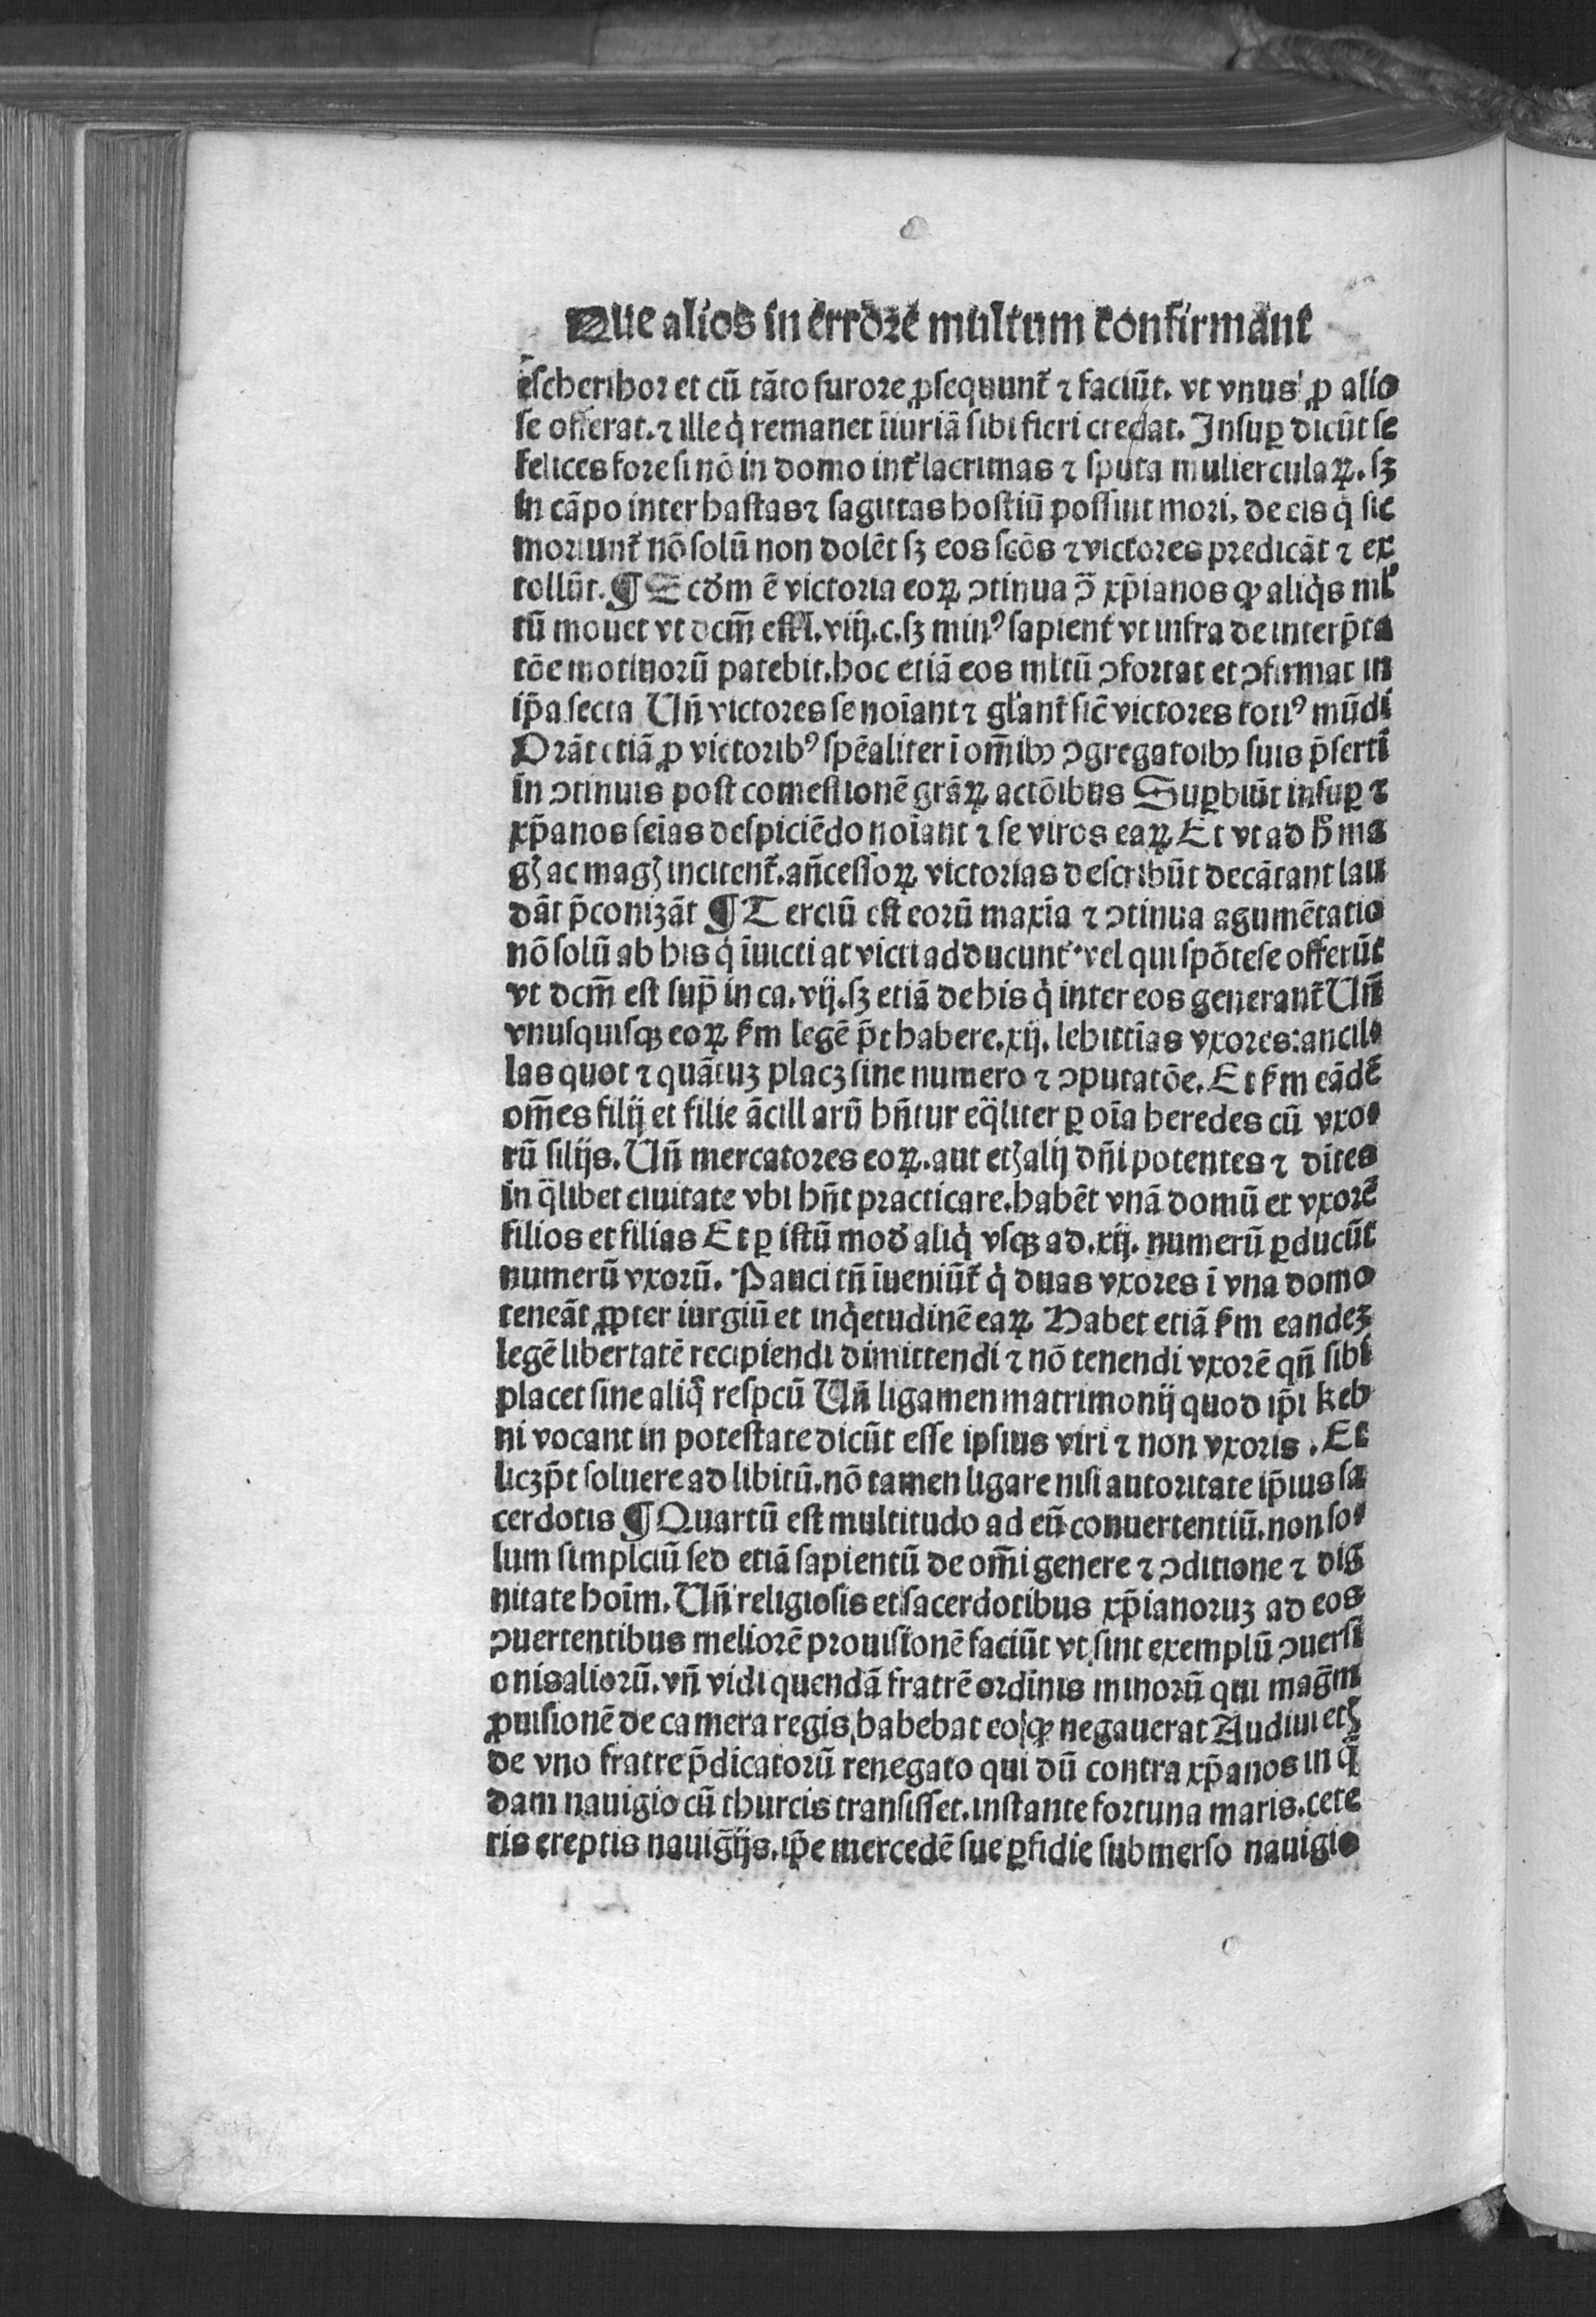 Que alios in errorē multum confirmant
escheribor et cū tāto furore ꝓsequunt̄ ⁊ faciūt. vt vnus ꝓ alio
se offerat. ⁊ ille q̇ remanet iīuriā sibi fieri credat. Insuꝑ dicūt se
felices fore si nō in domo int̄ lacrimas ⁊ sputa mulierculaꝝ. sꝫ
in cāpo inter hastas ⁊ sagittas hostiū possint mori, de eis q̇ sic
moriunt̄ nō solū non dolēt sꝫ eos scōs ⁊ victores predicāt ⁊ ex
tollūt. ¶ Scḋm ē victoria eoꝝ ↄtinua ↄ̄ xp̄ianos ꝙ aliq̇s ml̄
tū mouet vt dcm̄ est. viij. c. sꝫ minꝰ sapient̄ vt infra de interp̄ta
tōe motiuorū patebit. hoc etiā eos mltū ↄfortat et ↄfirmat in
ip̄a secta Un̄ victores se noīant ⁊ gl̄ant̄ sic̄ victores totiꝰ mūdi
Orāt etiā ꝓ victoribꝰ spēaliter ī om̄ibꝫ ↄgregatoibꝫ suis p̄serti
in ↄtinuis post comestionē grāꝝ actōibus Suꝑbiūt insuꝑ ⁊
xp̄anos feīas despiciēdo noīant ⁊ se viros eaꝝ Et vt ad h̄ ma
gꝭ ac magꝭ incitent̄. an̄cessoꝝ victorias describūt decātant lau
dāt p̄conizāt ¶ Terciū est eorū maxīa ⁊ ↄtinua agumētatio
nō solū ab his q̇ īuicti at victi adducunt̄ vel qui spōte se offerūt
vt dcm̄ est sup̄ in ca. vij. sꝫ etiā de his q̇ inter eos generant̄ Un̄
vnusquisqꝫ eoꝝ ẜm legē p̄t habere. xij. lebittīas vxores: ancil
las quot ⁊ quātuꝫ placꝫ sine numero ⁊ ↄputatōe. Et ẜm eādē
om̄es filij et filie ācillarū hn̄tur eq̄liter ꝑ oīa heredes cū vxo
rū filijs. Un̄ mercatores eoꝝ. aut etꝭ alij dn̄i potentes ⁊ dites
in q̄libet ciuitate vbi hn̄t practicare. habēt vnā domū et vxorē
filios et filias Et ꝑ istū moḋ aliq̇ vsqꝫ ad. xij. numerū ꝑducūt
numerū vxorū. Pauci tn̄ īueniūt̄ q̇ duas vxores ī vna domo
teneāt ꝓpter iurgiū et inq̇etudinē eaꝝ Habet etiā ẜm eandeꝫ
legē libertatē recipiendi dimittendi ⁊ nō tenendi vxorē qn̄ sibi
placet sine aliq̄ respcū Un̄ ligamen matrimonij quod ip̄i keb
ni vocant in potestate dicūt esse ipsius viri ⁊ non vxoris. Et
licꝫ p̄t soluere ad libitū. nō tamen ligare nisi autoritate ip̄ius sa
cerdotis ¶ Quartū est multitudo ad eū conuertentiū. non so
lum simplciū sed etiā sapientū de om̄i genere ⁊ ↄditione ⁊ dig
nitate hoīm. Un̄ religiosis et sacerdotibus xp̄ianoruꝫ ad eos
ↄuertentibus meliorē prouisionē faciūt vt sint exemplū ↄuersi
onis aliorū. vn̄ vidi quendā fratrē ordinis minorū qui maḡm
ꝓuisionē de camera regis habebat eo ꝙ negauerat Audiui etꝭ
de vno fratre p̄dicatorū renegato qui dū contra xp̄anos in q̄
dam nauigio cū thurcis transisset. instante fortuna maris. cete
ris ereptis nauiḡijs. ip̄e mercedē sue ꝑfidie submerso nauigio